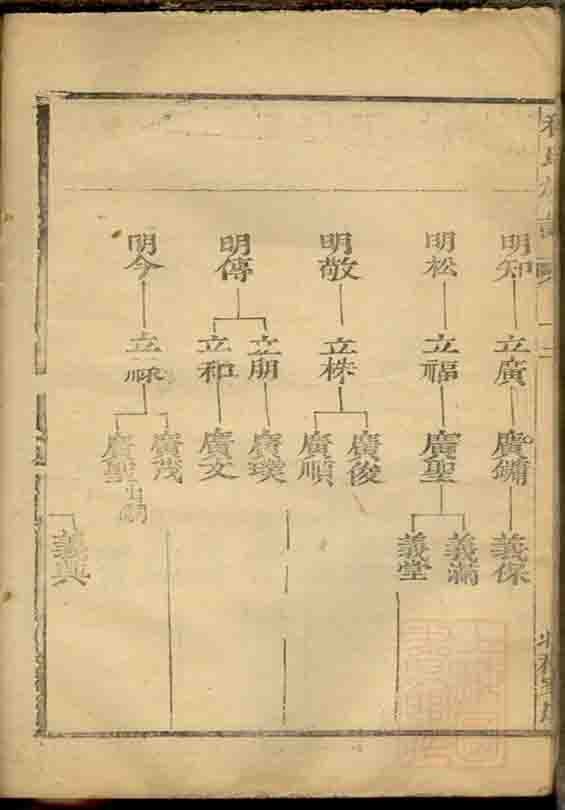 明知
立廣
廣鏞
義保
明松
立福
廣聖
義滿
義堂
明敬
立株
廣俊
廣順
明傳
立朋
廣璞
立和
廣文
明今
立祿
廣茂
廣聖出嗣
義興